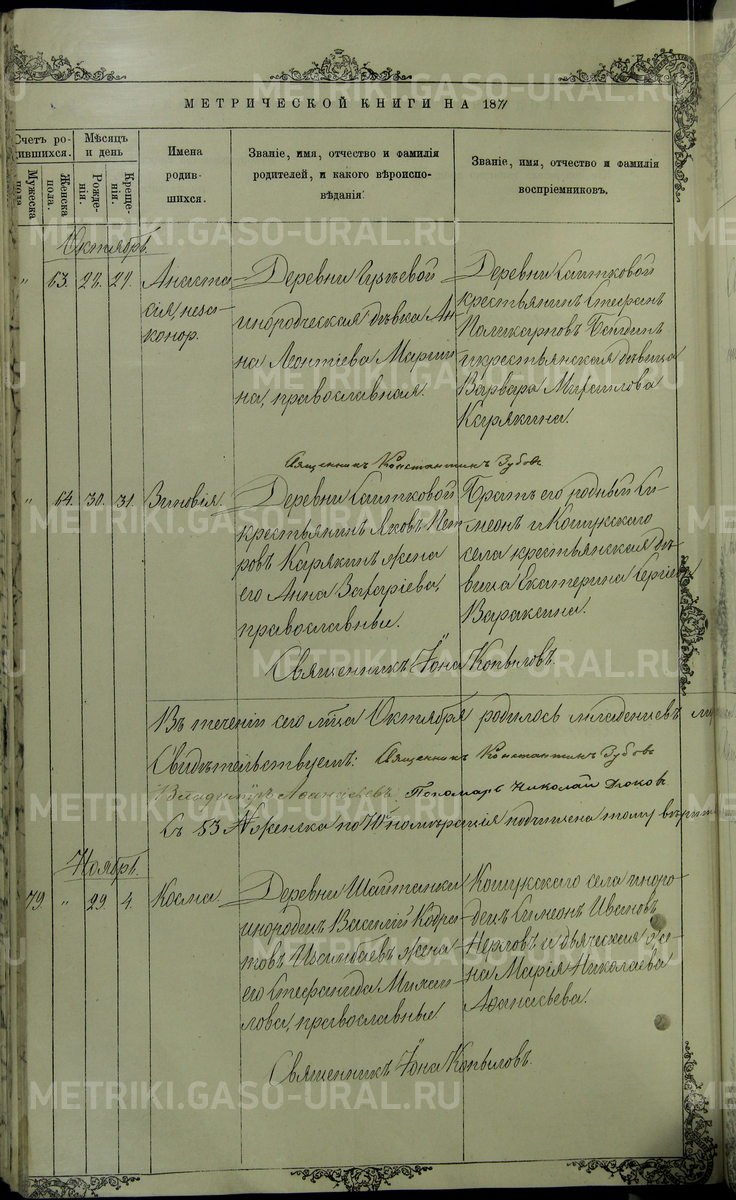 МЕТРИЧЕСКОЙ КНИГИ НА 1877
Счетъ родившихся.
Мужеска пола.
Женска пола.
Мѣсяцъ и день
Рожденія.
Крещенія.
Имена родившихся.
Званіе, имя, отчество и фамилія родителей, и какого вѣроисповѣданія.
Званіе, имя, отчество и фамилія воспріемниковъ.
Октябрь.
" 63. 22. 24.
Анаста
сія неза
конор.
Деревни
инородческая дѣвка Ан
на Леонтіева
на, православная.
Деревни Саитковой
крестьянинъ Стефанъ
Поликарповъ
и крестьянская дѣвица
Варвара
Карякина.
Священникъ Константинъ Зубовъ
" 64. 30. 31. Зиновія.
Деревни Саитковой
крестьянинъ Яковъ Пет
ровъ Карякинъ жена
его Анна Захаріева,
православные.
Братъ его родный Си
меонъ и Кошукскаго
села крестьянская дѣ
вица Екатерина Сергіева
Вараксина.
Священникъ Іона Копыловъ.
Въ теченіи сего мѣсяца Октября родилось младенцевъ
Свидѣтельствуемъ: Священникъ Константинъ Зубовъ
Владиміръ Аѳанасьевъ Пономарь Николай
Съ 53 № женска по 70
Ноябрь.
79. " 29. 4. Косма.
Деревни Шайтанки
инородецъ Василій Кодра
товъ жена
его Стефанида Михаи
лова, православные
Кошукскаго села иноро
децъ Симеонъ Ивановъ
Нерловъ и дьяческая же
на Марія Николаева
Аѳанасьева.
Священникъ Іона Копыловъ.
METRIKI.GASO-URAL.RU